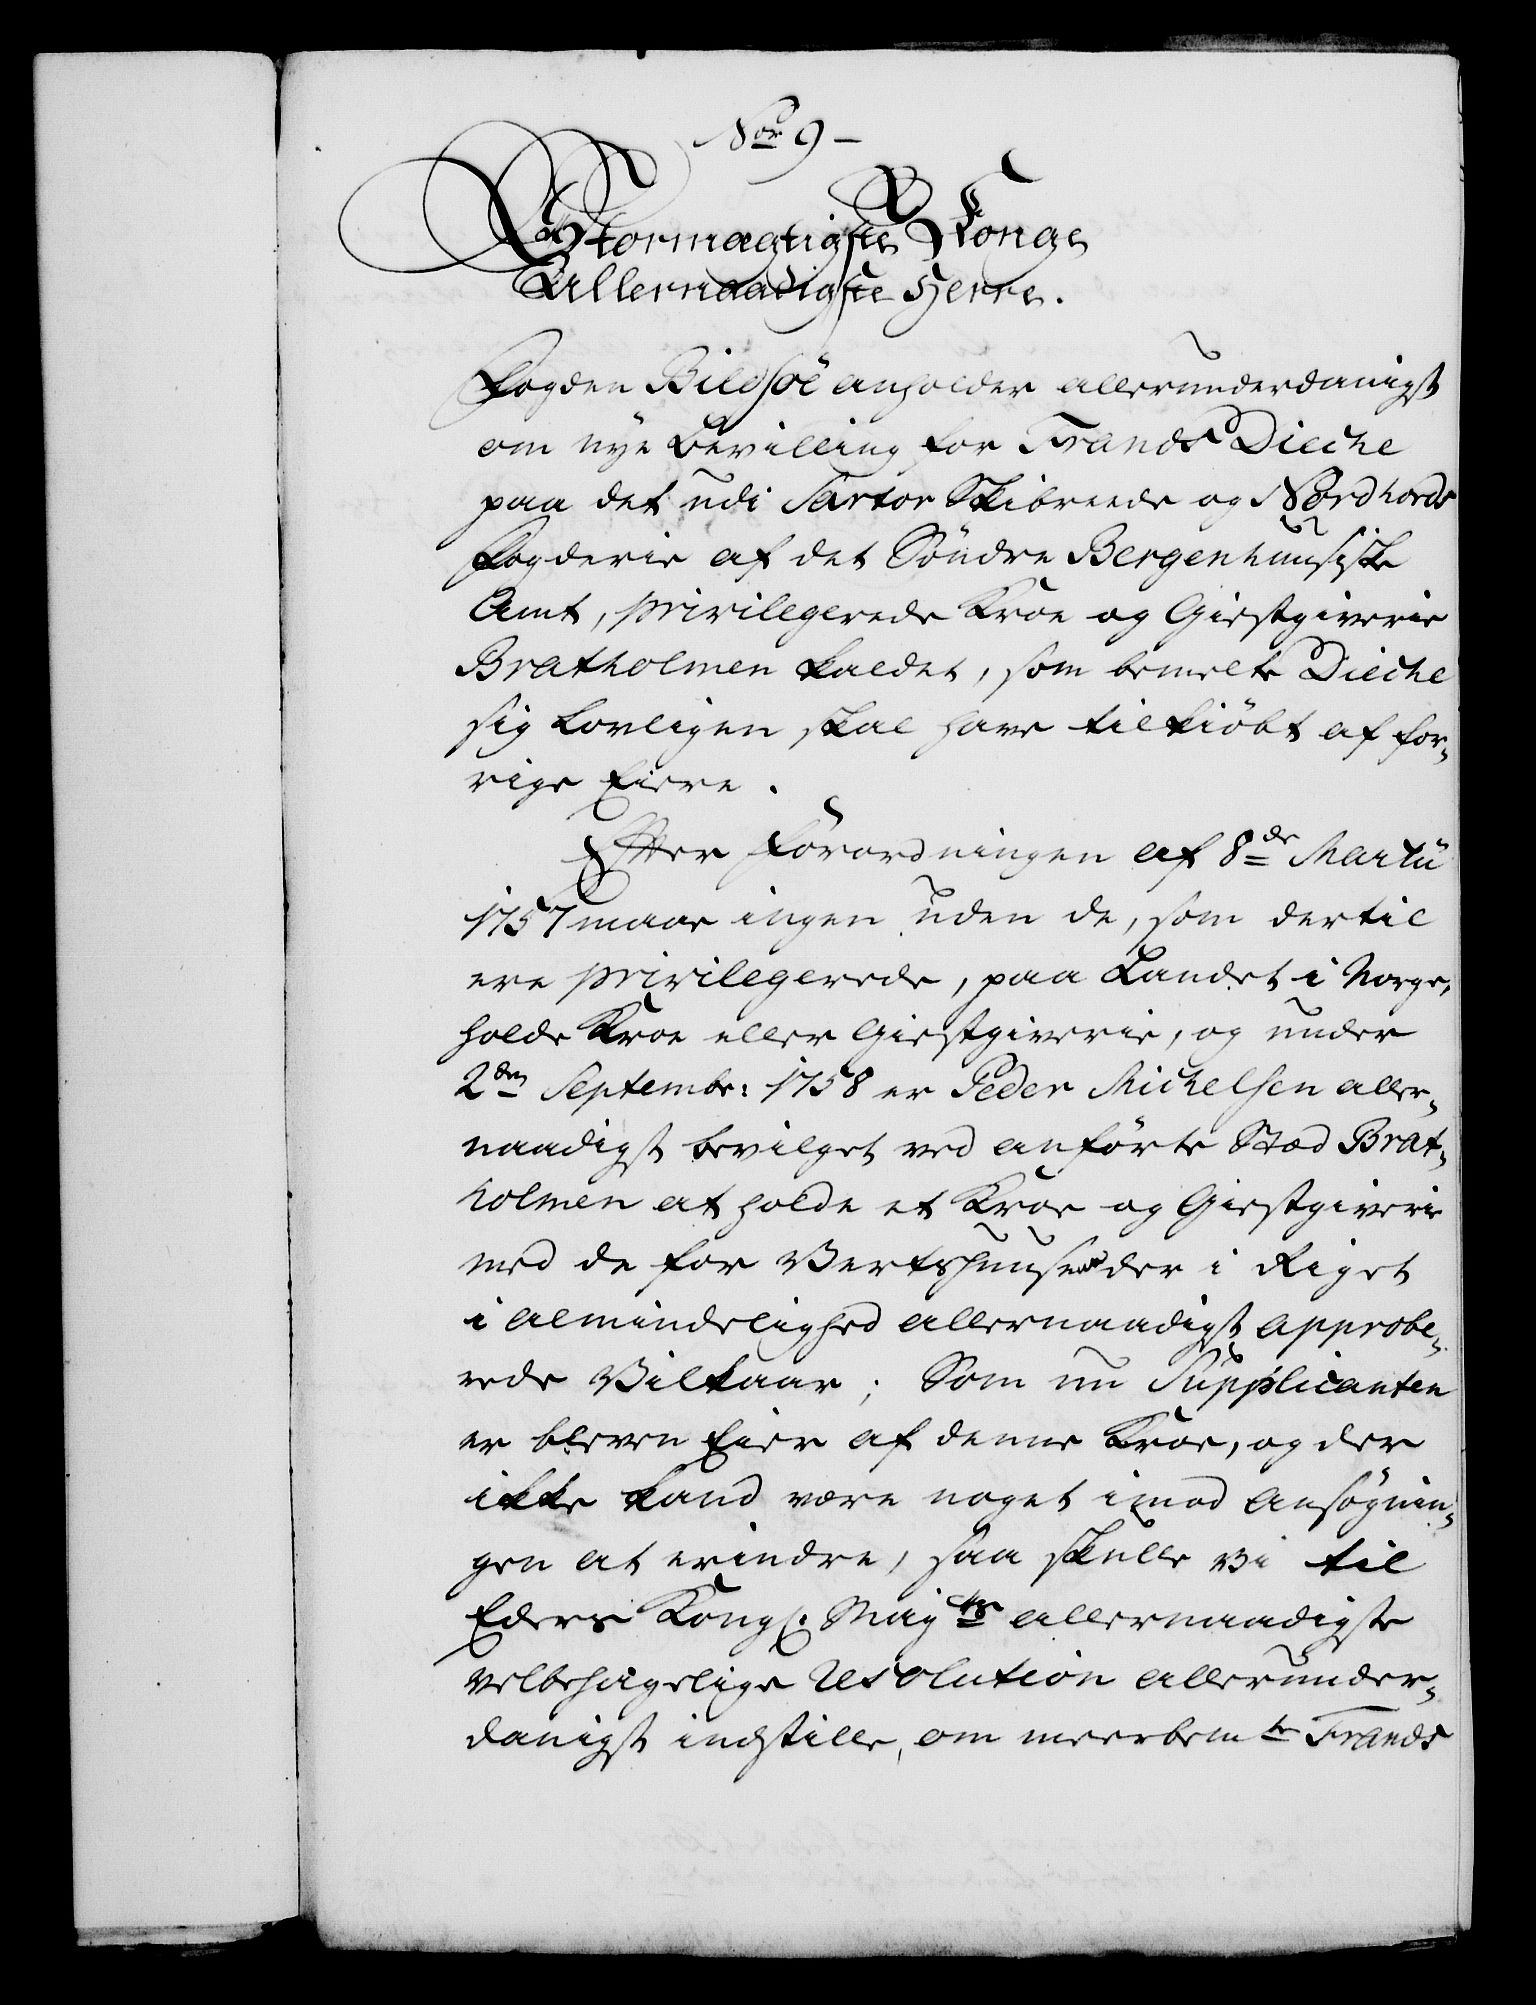 Nor 9 –
Stormægtigste Konge
Allernaadigste Herre.
Fogden Bildsöe anholder allerunderdanigst
om nye Bevilling for Frands Dieche
paa det udi Sartor Skibreede og Nordhords
Fogderie af det Söndre Bergenhuusiske
Amt, privilegerede Kroe og Giestgiverie
Bratholmen kaldet, som bemelte Dieche
sig lovligen skal have tilkiöbt af for-
rige Eiere.
Efter Forordningen af 8de Martii
1757 maae ingen uden de, som dertil
ere privilegerede, paa Landet i Norge,
holde Kroe eller Giestgiverie, og under
2den Septembr: 1758 er Peder Michelsen aller-
naadigst bevilget ved anförte Stæd Brat-
holmen at holde et Kroe og Giestgiverie
med de for Vertshuuse der i Riget
i Almindelighed allernaadigst approbe-
rede Vilkaar; Som nu Supplicanten
er bleven Eier af denne Kroe, og der
ikke kand være noget imod Ansögnin-
gen at erindre, saa skulle vi til
Eders Kongl. Mayts allernaadigste
velbehagelige Resolution allerunder-
danigst indstille, om meerbemte Frands